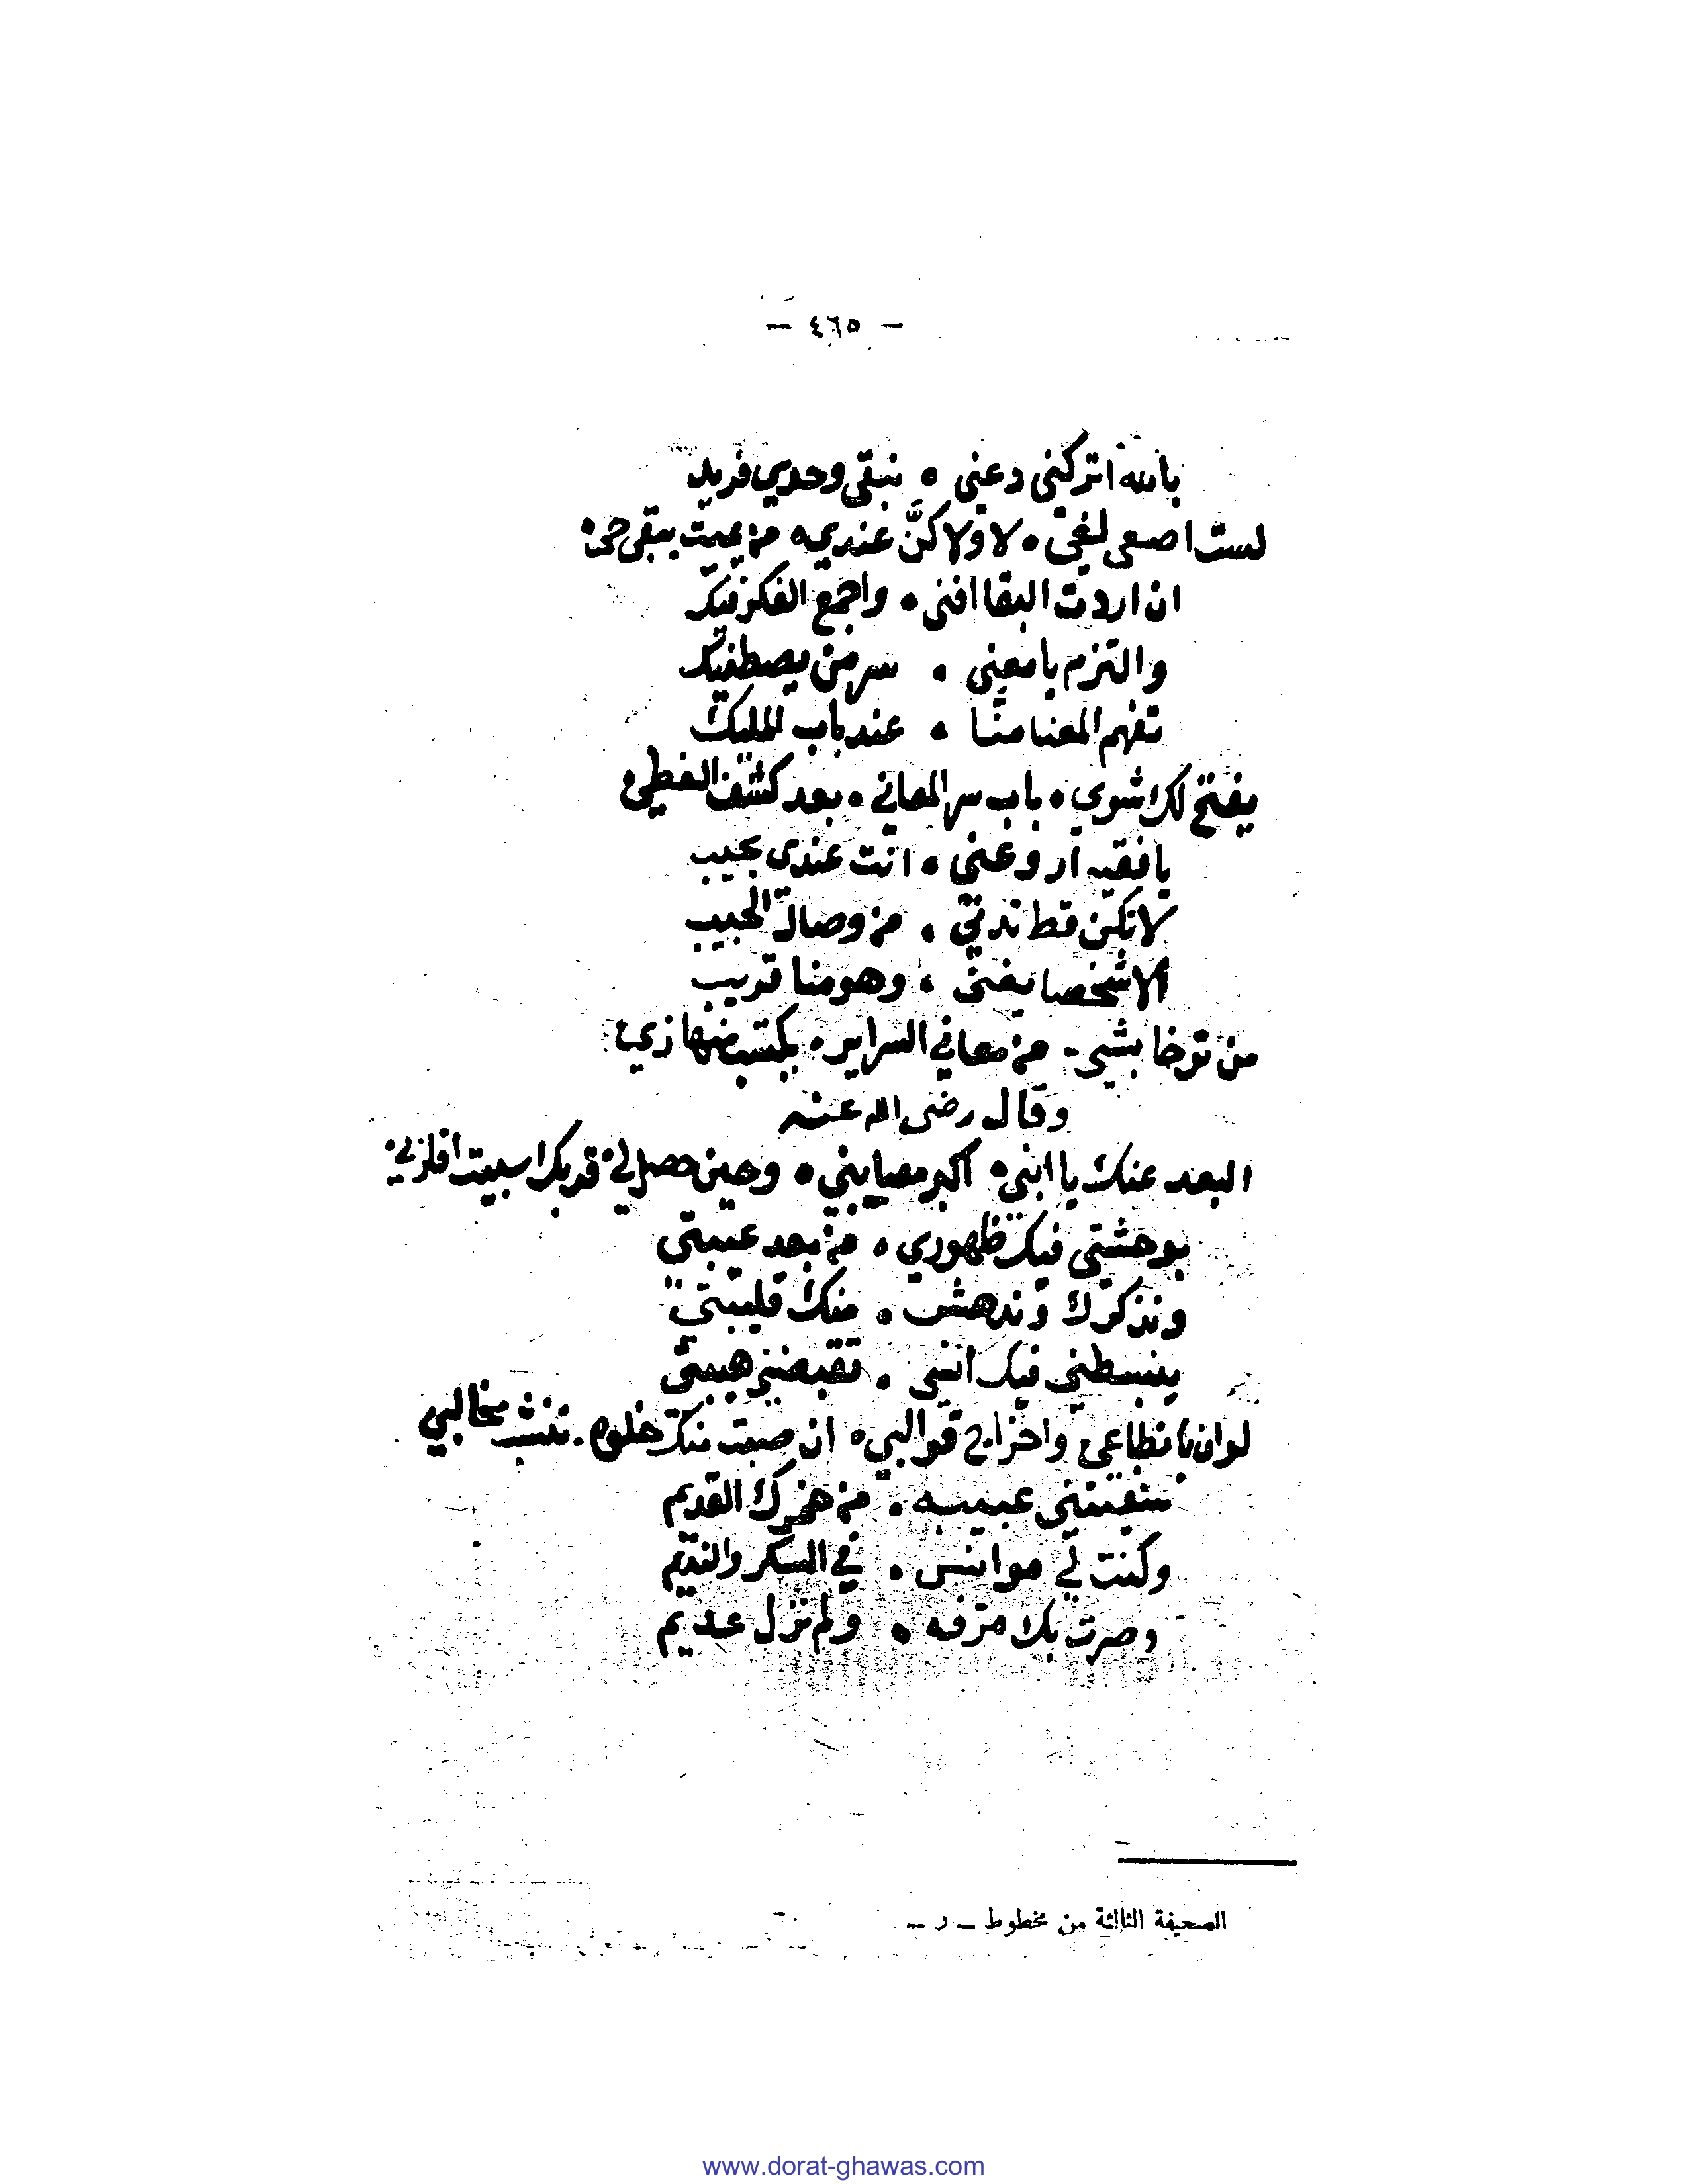 — ٤٦٥ —
بالله اتركني دعني ٥ نبقى وحدي فريد
لست اصعى لغى ٥ لا ولا كنّ عندي ٥ من يميت يبقى حي ٥
ان اردت البقا افنى ٥ واجمع الفكر فيك
والتزم يا معنى ٥ سر من يصطفيك
تفهم المعنا منّا ٥ عند باب المليك
يفتح لك شوي ٥ باب سر المعاني ٥ بعد كشف الغطي ٥
يا فقيه ارو عني ٥ انت عندى نجيب
لا تكن قط تدني ٥ من وصال الحبيب
ألا شخصا يفنى ٥ وهو منا قريب
من توخا بشي - من معاني السراير ٥ يكتب منها زي ٥
وقال رضى الله عنه
البعد عنك يا ابني ٥ اكبر مصايبني ٥ وحين حصل لي ٥ قربك سبيت اقاربي ٥
بوحشتي فيك ظهوري ٥ من بعد غيبتي
ونذكرك وندهش ٥ منك قليبتي
يبسطني فيك انسي ٥ تقبضني هيبتي
لو ان با نطباعي واخراج قوالبي ٥ ان صبت منك خلوه ٥ تنشب مخالبي
سقيتني عبيبه ٥ من خمرك القديم
وكنت لي موانس ٥ في السكر والنديم
وصرت بك لا مرفه ٥ ولم نزل عديم
الصحيفة الثالثة من مخطوط — ر —
www.dorat-ghawas.com